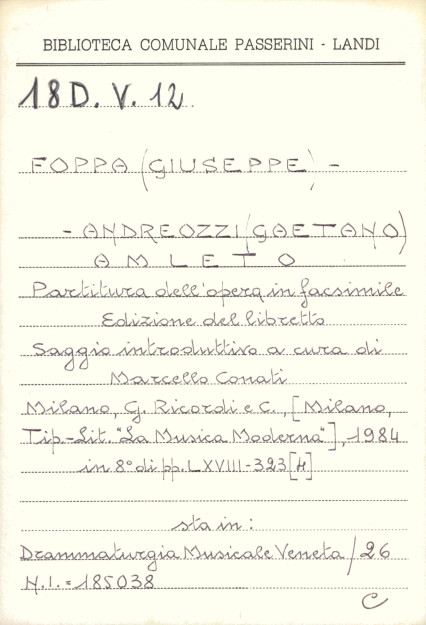 BIBLIOTECA COMUNALE PASSERINI - LANDI
18 D. V. 12
FOPPA (GIUSEPPE) -
- ANDREOZZI (GAETANO)
AMLETO
Partitura dell'opera in facsimile
Edizione del libretto
Saggio introduttivo a cura di
Marcello Conati
Milano, G. Ricordi e C., [Milano,
Tip.-Lit. "La Musica Moderna"], 1984
in 8° di pp. LXVIII-323 [4]
sta in:
Drammaturgia Musicale Veneta / 26
N.I. = 185038
C